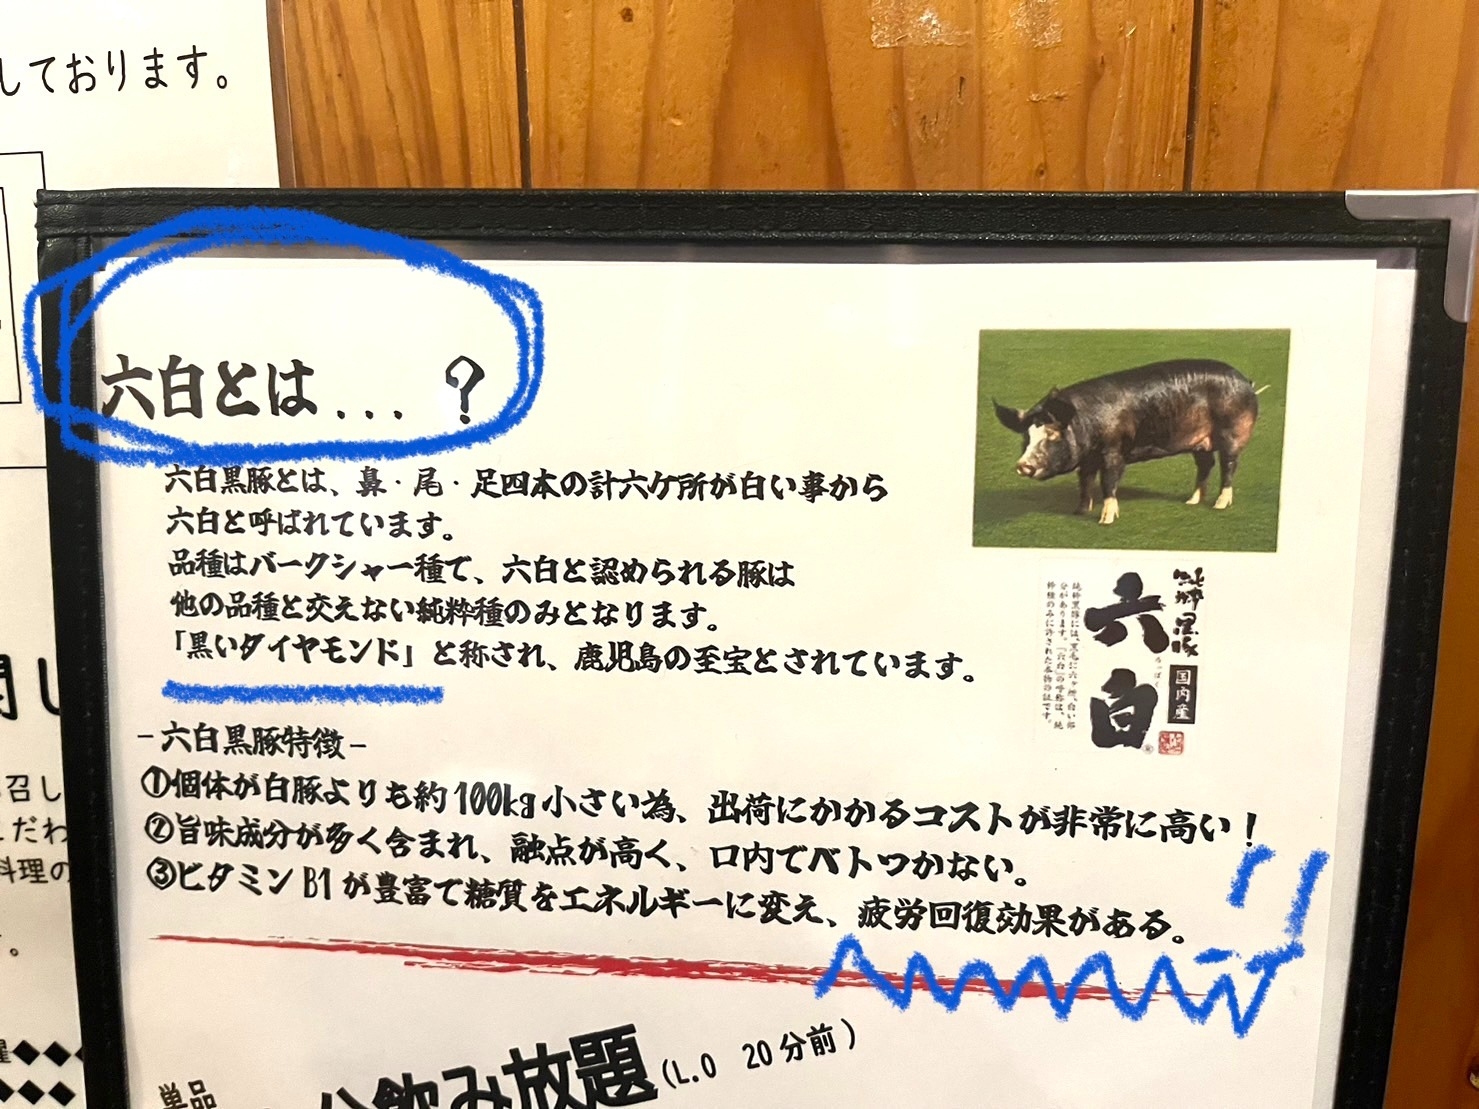 しております。
六白とは...?
六白黒豚とは、鼻・尾・足四本の計六ケ所が白い事から
六白と呼ばれています。
品種はバークシャー種で、六白と認められる豚は
他の品種と交えない純粋種のみとなります。
「黒いダイヤモンド」と称され、鹿児島の至宝とされています。
純粋黒豚
六白
ろっぱく
国内産
純粋黒豚には、黒毛に六ヶ所、白い部
分があります。「六白」の呼称は、純
粋種のみに許された本物の証です。
-六白黒豚特徴-
①個体が白豚よりも約100kg小さい為、出荷にかかるコストが非常に高い!
②旨味成分が多く含まれ、融点が高く、口内でベトつかない。
③ビタミンB1が豊富で糖質をエネルギーに変え、疲労回復効果がある。
単品
飲み放題(L.O 20分前)
召し
こだわ
料理の